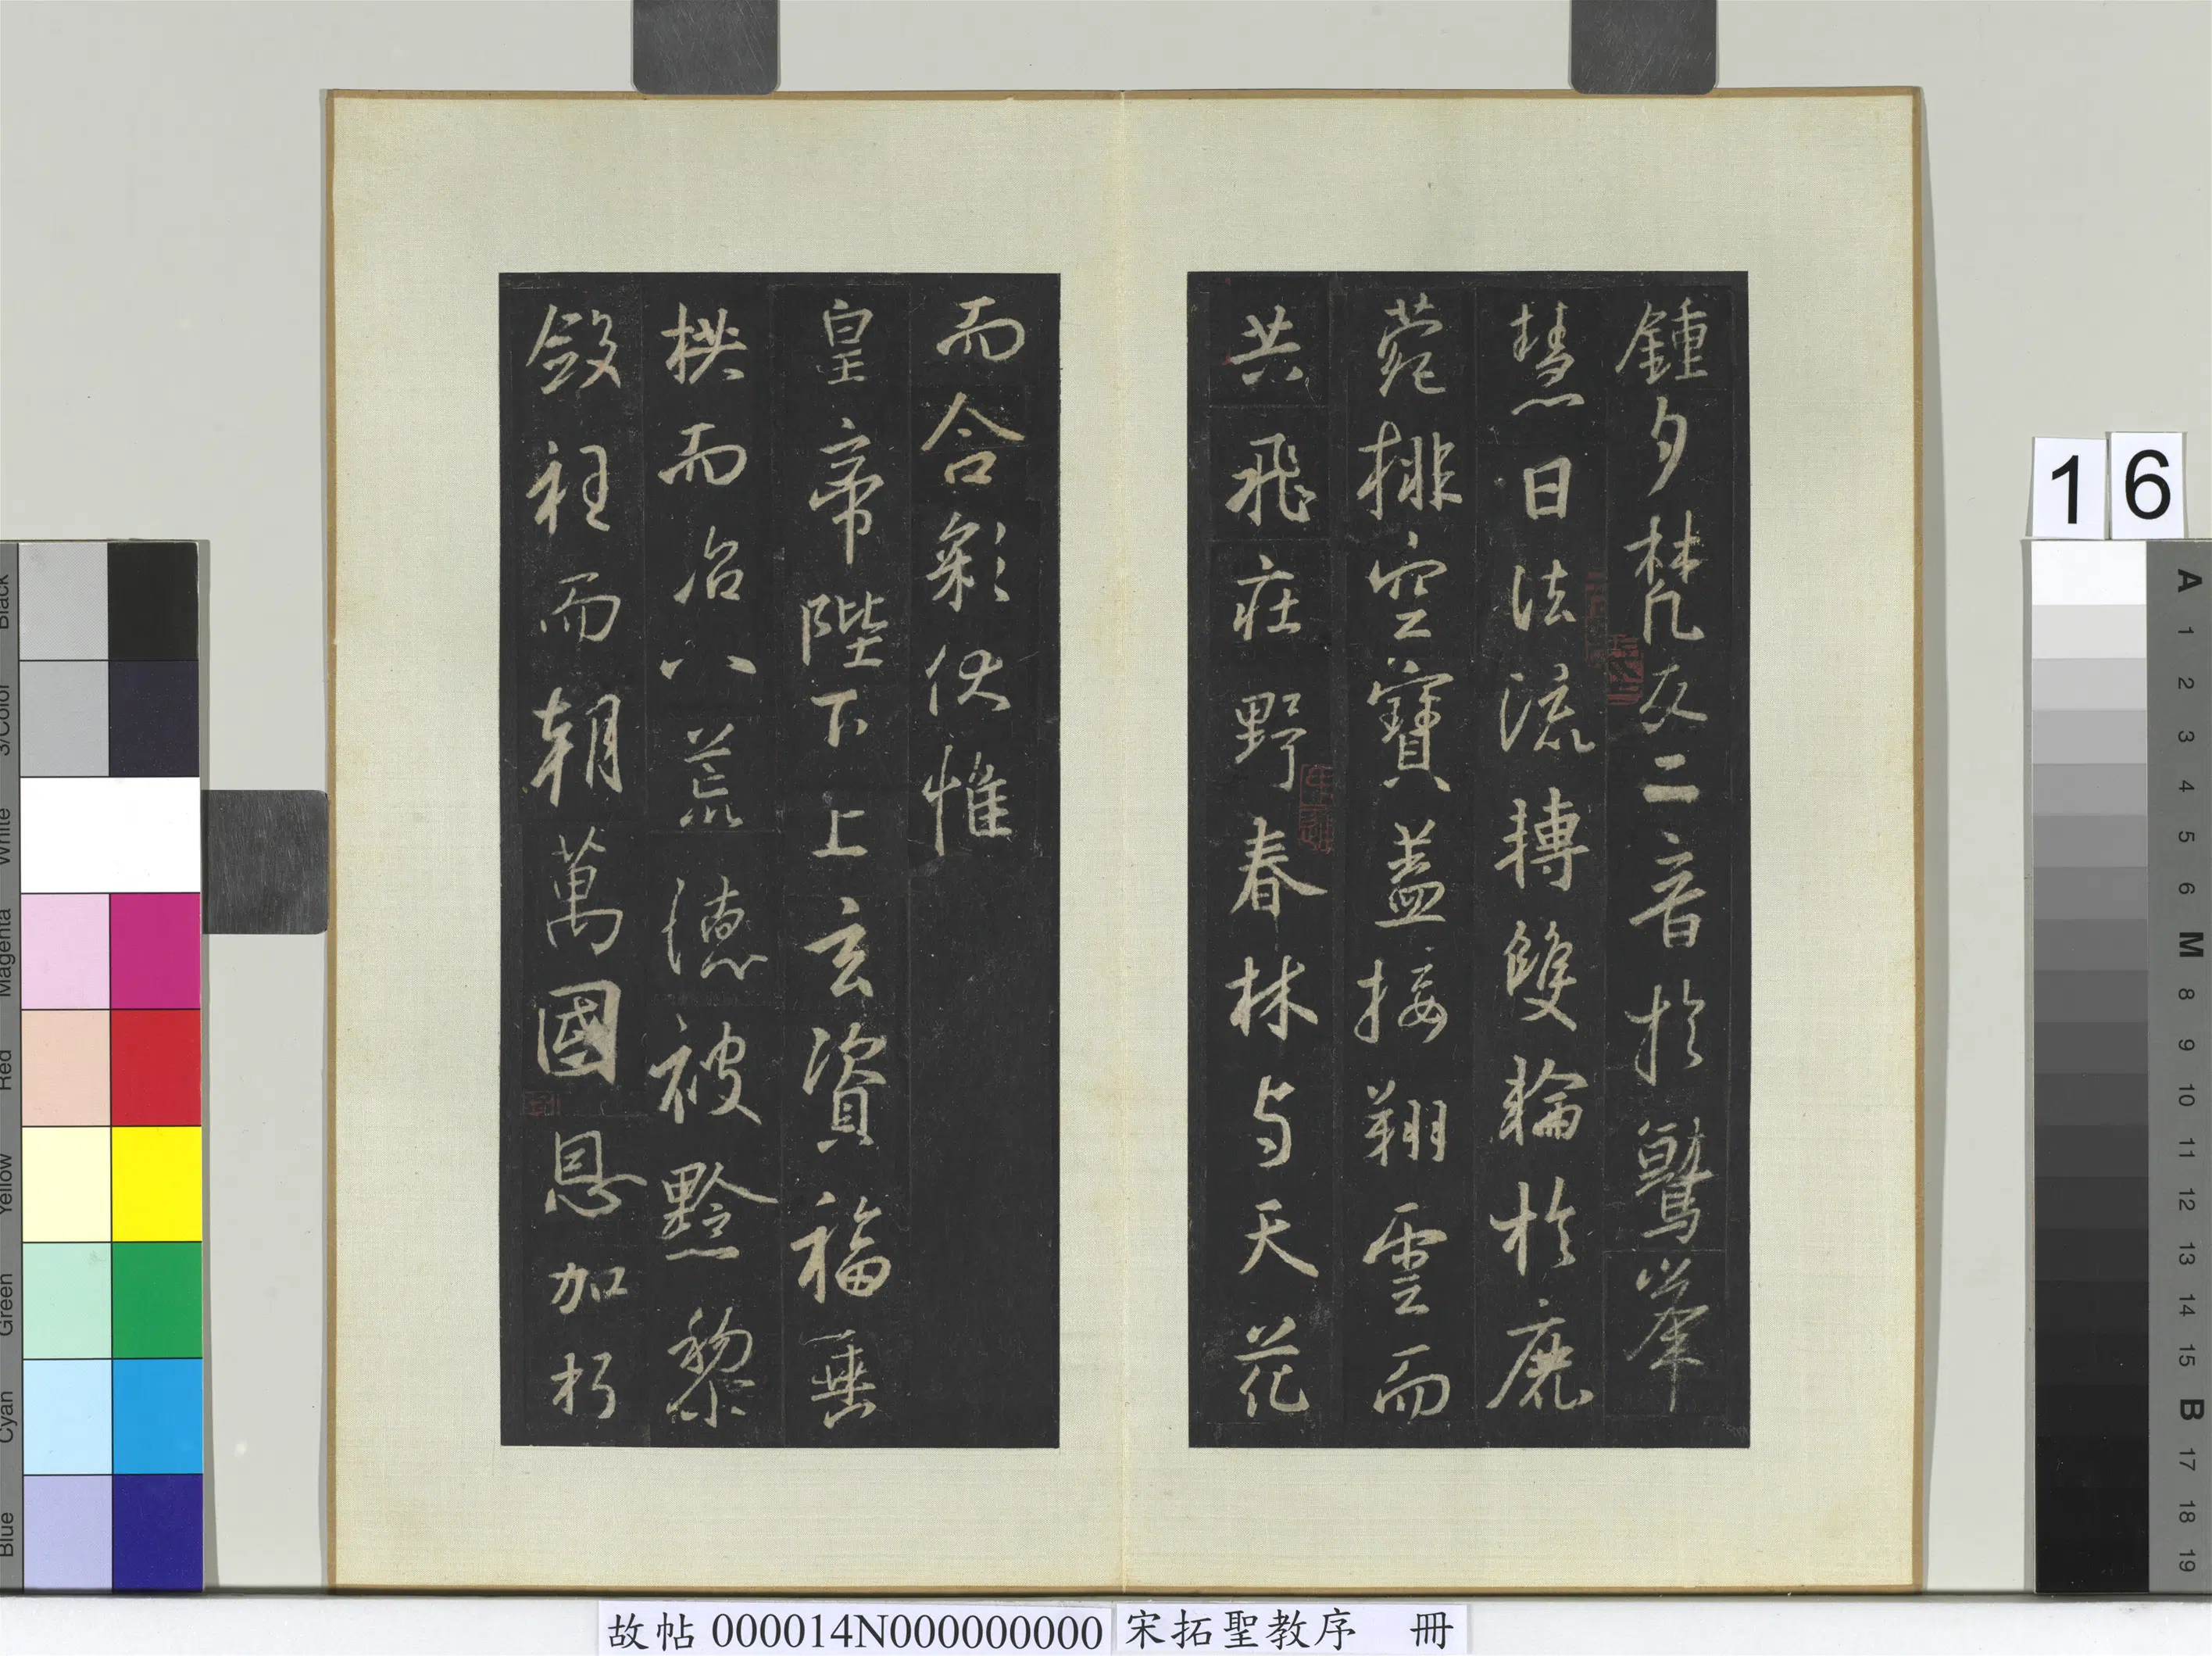 鍾夕梵交二音於鷲峯
慧日法流轉雙輪於鹿
菀排空寶蓋接翔雲而
共飛庄野春林与天花
而合彩伏惟
皇帝陛下上玄資福垂
拱而治八荒德被黔黎
斂衽而朝萬國恩加朽
16
Black
3/Color
White
Magenta
Red
Yellow
Green
Cyan
Blue
A
1
2
3
4
5
6
M
8
9
10
11
12
13
14
15
B
17
18
19
故帖 000014N000000000 宋拓聖教序 冊